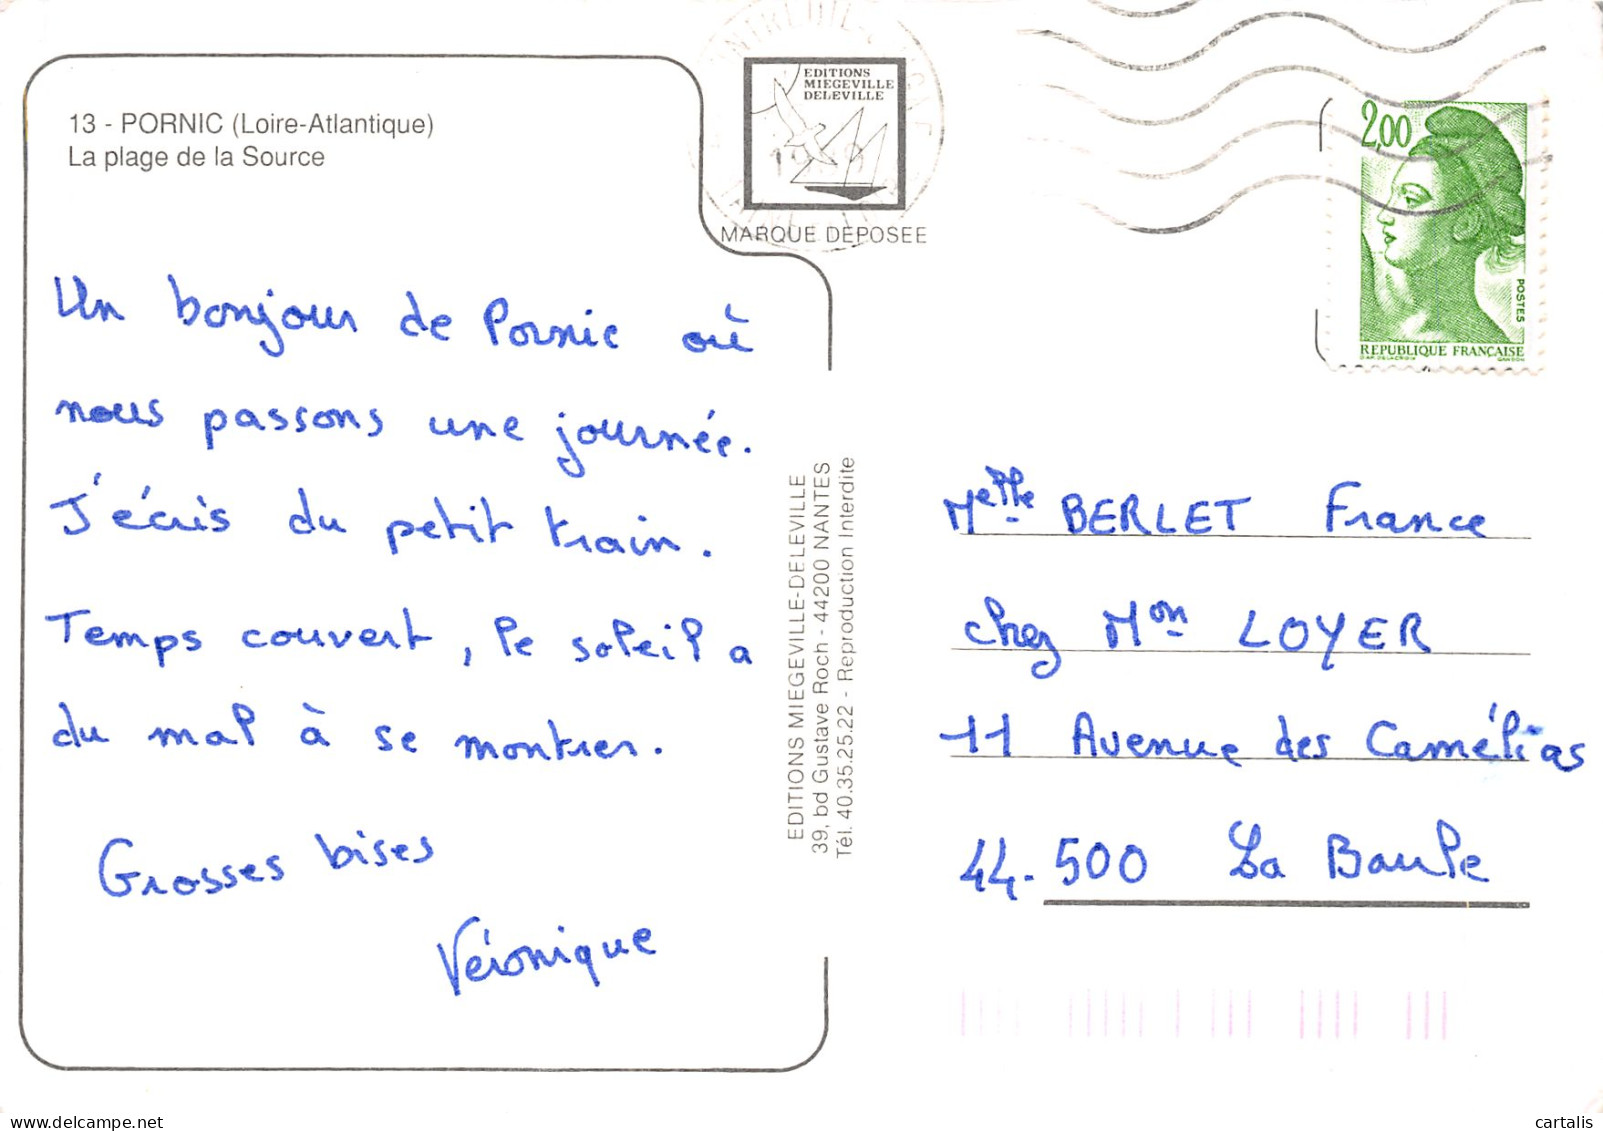 13 - PORNIC (Loire-Atlantique)
La plage de la Source
EDITIONS
MIEGEVILLE
DELEVILLE
MARQUE DEPOSEE
2,00
POSTES
REPUBLIQUE FRANÇAISE
Un bonjour de Pornic où
nous passons une journée.
J'écris du petit train.
Temps couvert, le soleil a
du mal à se montrer.
Grosses bises
Véronique
EDITIONS MIEGEVILLE-DELEVILLE
39, bd Gustave Roch - 44200 NANTES
Tél. 40.35.25.22 - Reproduction Interdite
Melle BERLET France
chez Mon LOYER
11 Avenue des Camélias
44.500 La Baule
delcampe.net
cartalis